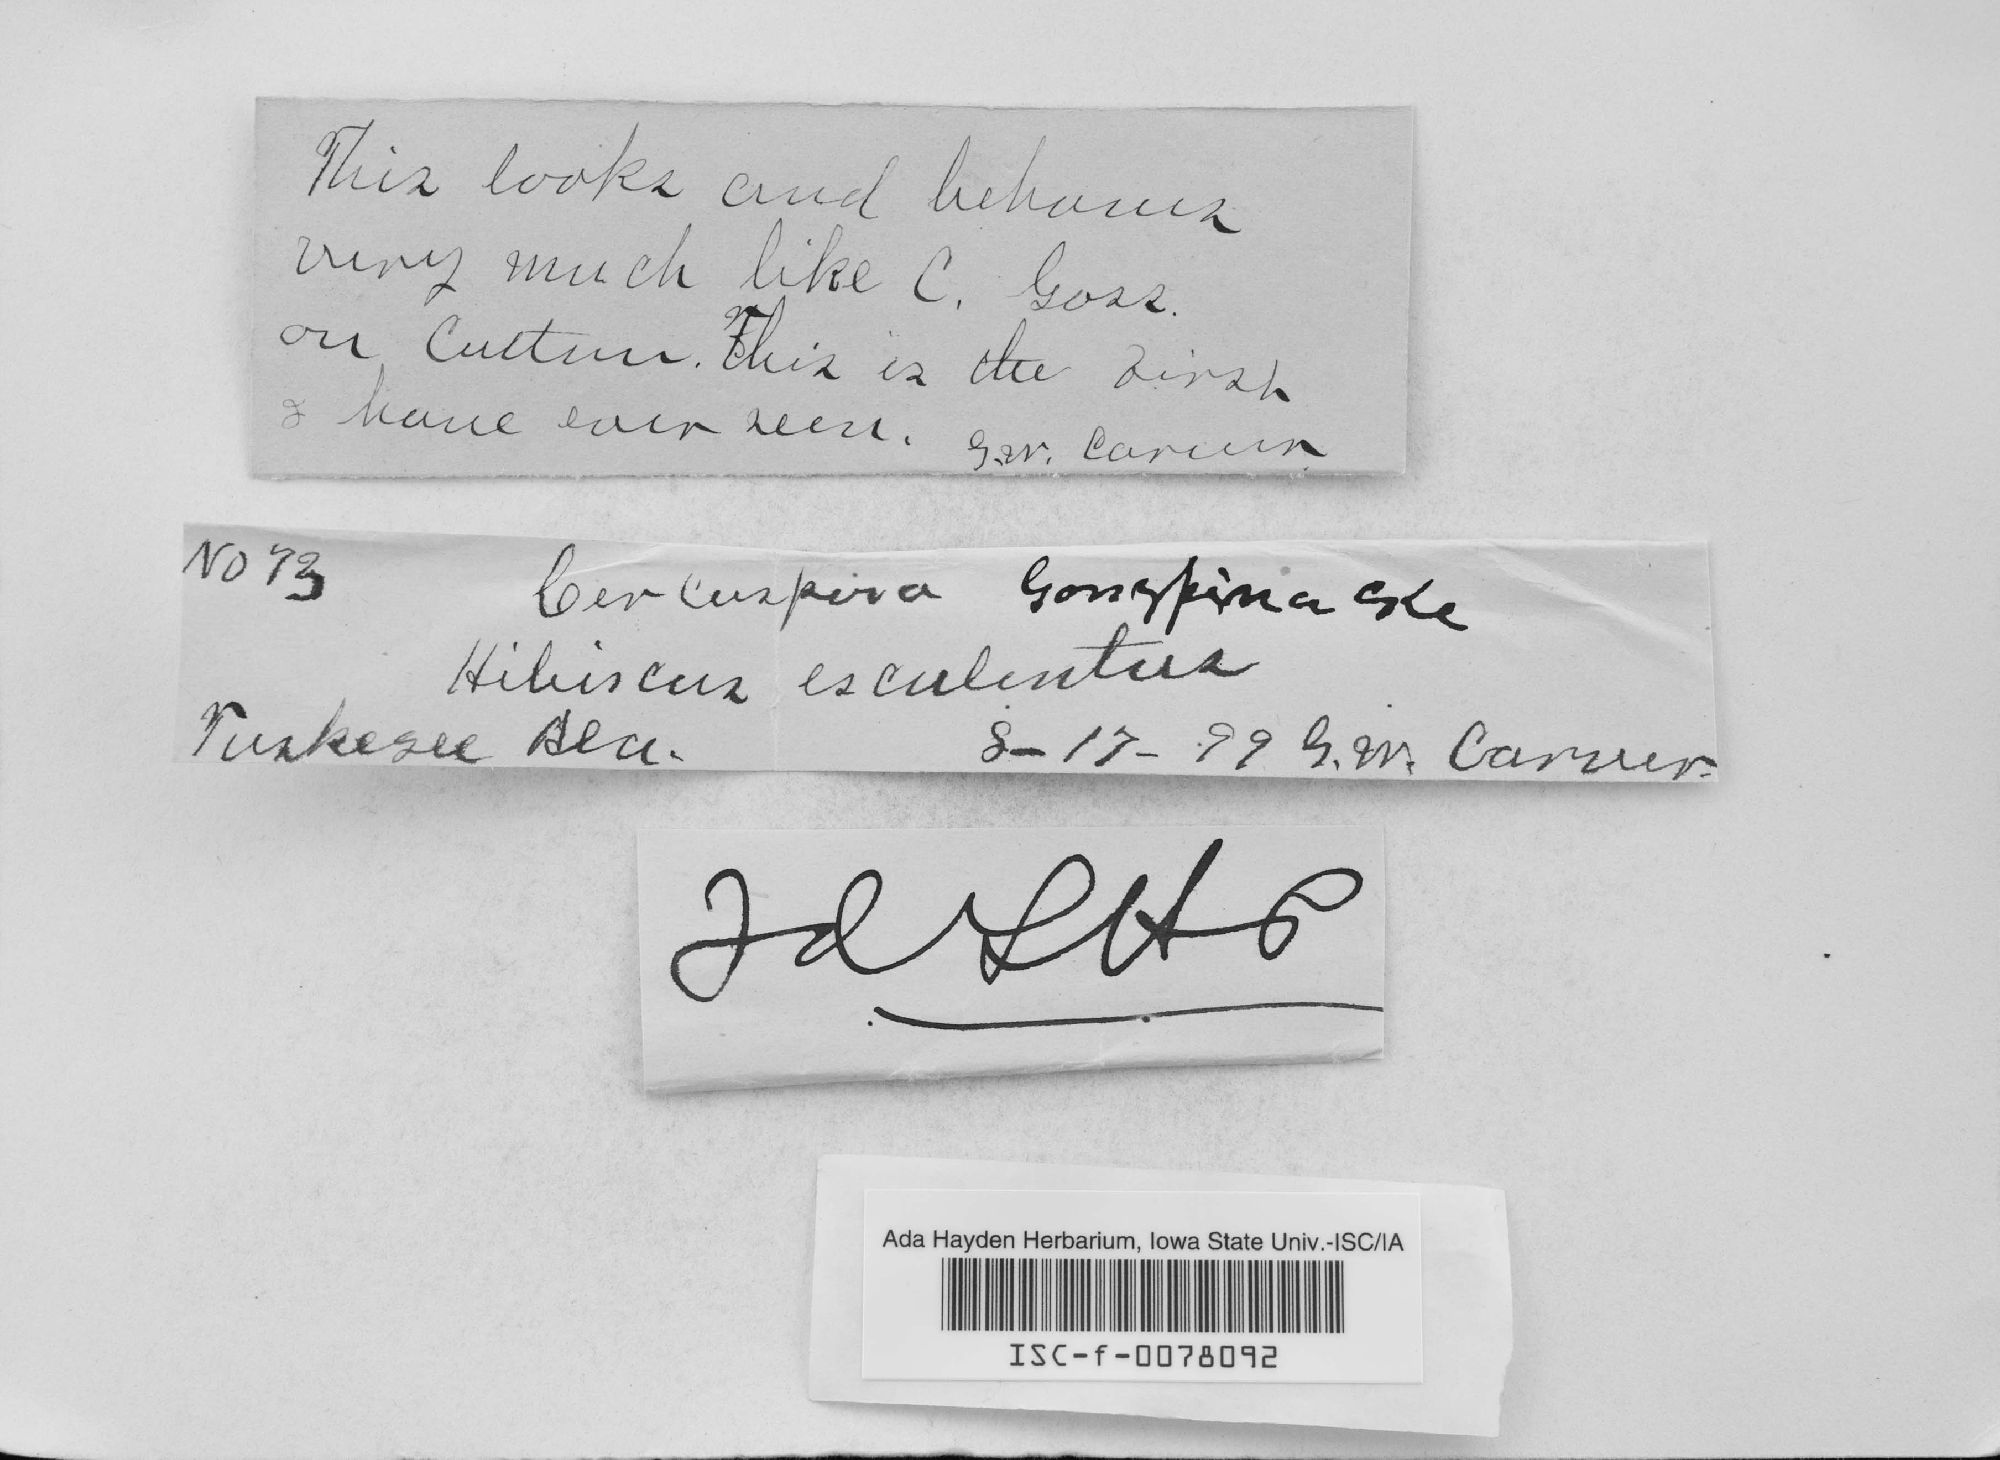 This looks and behaves
very much like C. Goss.
on Cutton. This is the first
I have ever seen. G.W. Carver.
No 73 Cercospora Gossypina Cke
Hibiscus esculentus
Tuskegee Ala. 8-17-99 G.W. Carver.
Ada Hayden Herbarium, Iowa State Univ.-ISC/IA
ISC-f-0078092